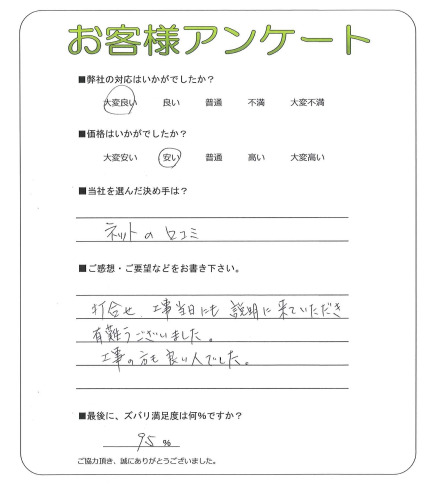 お客様アンケート
■弊社の対応はいかがでしたか？
大変良い 良い 普通 不満 大変不満
■価格はいかがでしたか？
大変安い 安い 普通 高い 大変高い
■当社を選んだ決め手は？
ネットの口コミ
■ご感想・ご要望などをお書き下さい。
打合せ、工事当日にも説明に来ていただき
有難うございました。
工事の方も良い人でした。
■最後に、ズバリ満足度は何%ですか？
95 %
ご協力頂き、誠にありがとうございました。